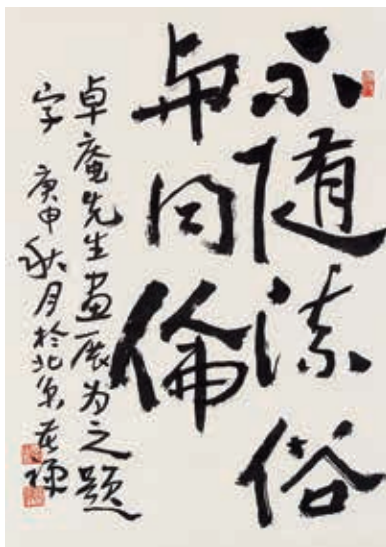 不随流俗
与同伦
卓庵先生画展为之题
字 庚申秋月於北京苦禅